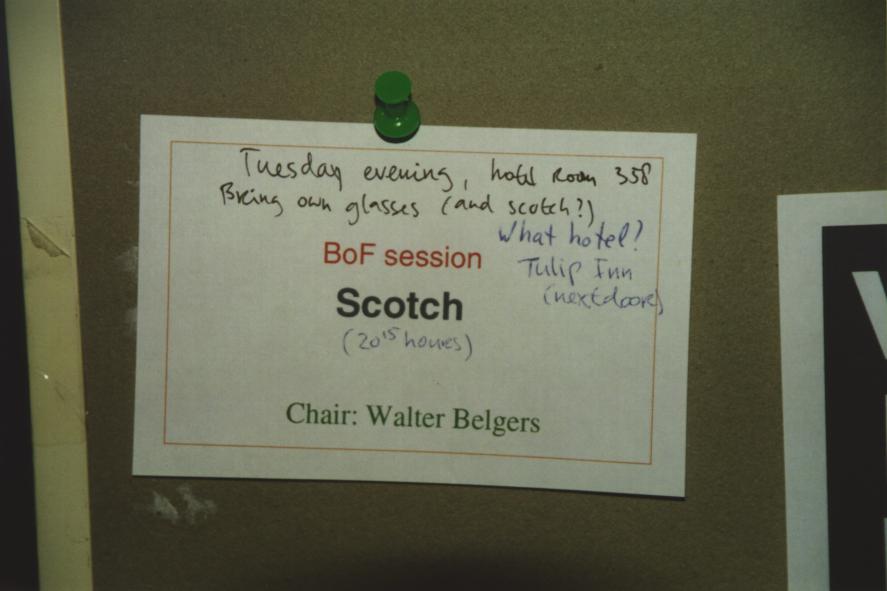 Tuesday evening, hotel room 358
Bring own glasses (and scotch?)
What hotel?
BoF session
Tulip Inn
Scotch
(nextdoore)
(20¹⁵ houres)
Chair: Walter Belgers